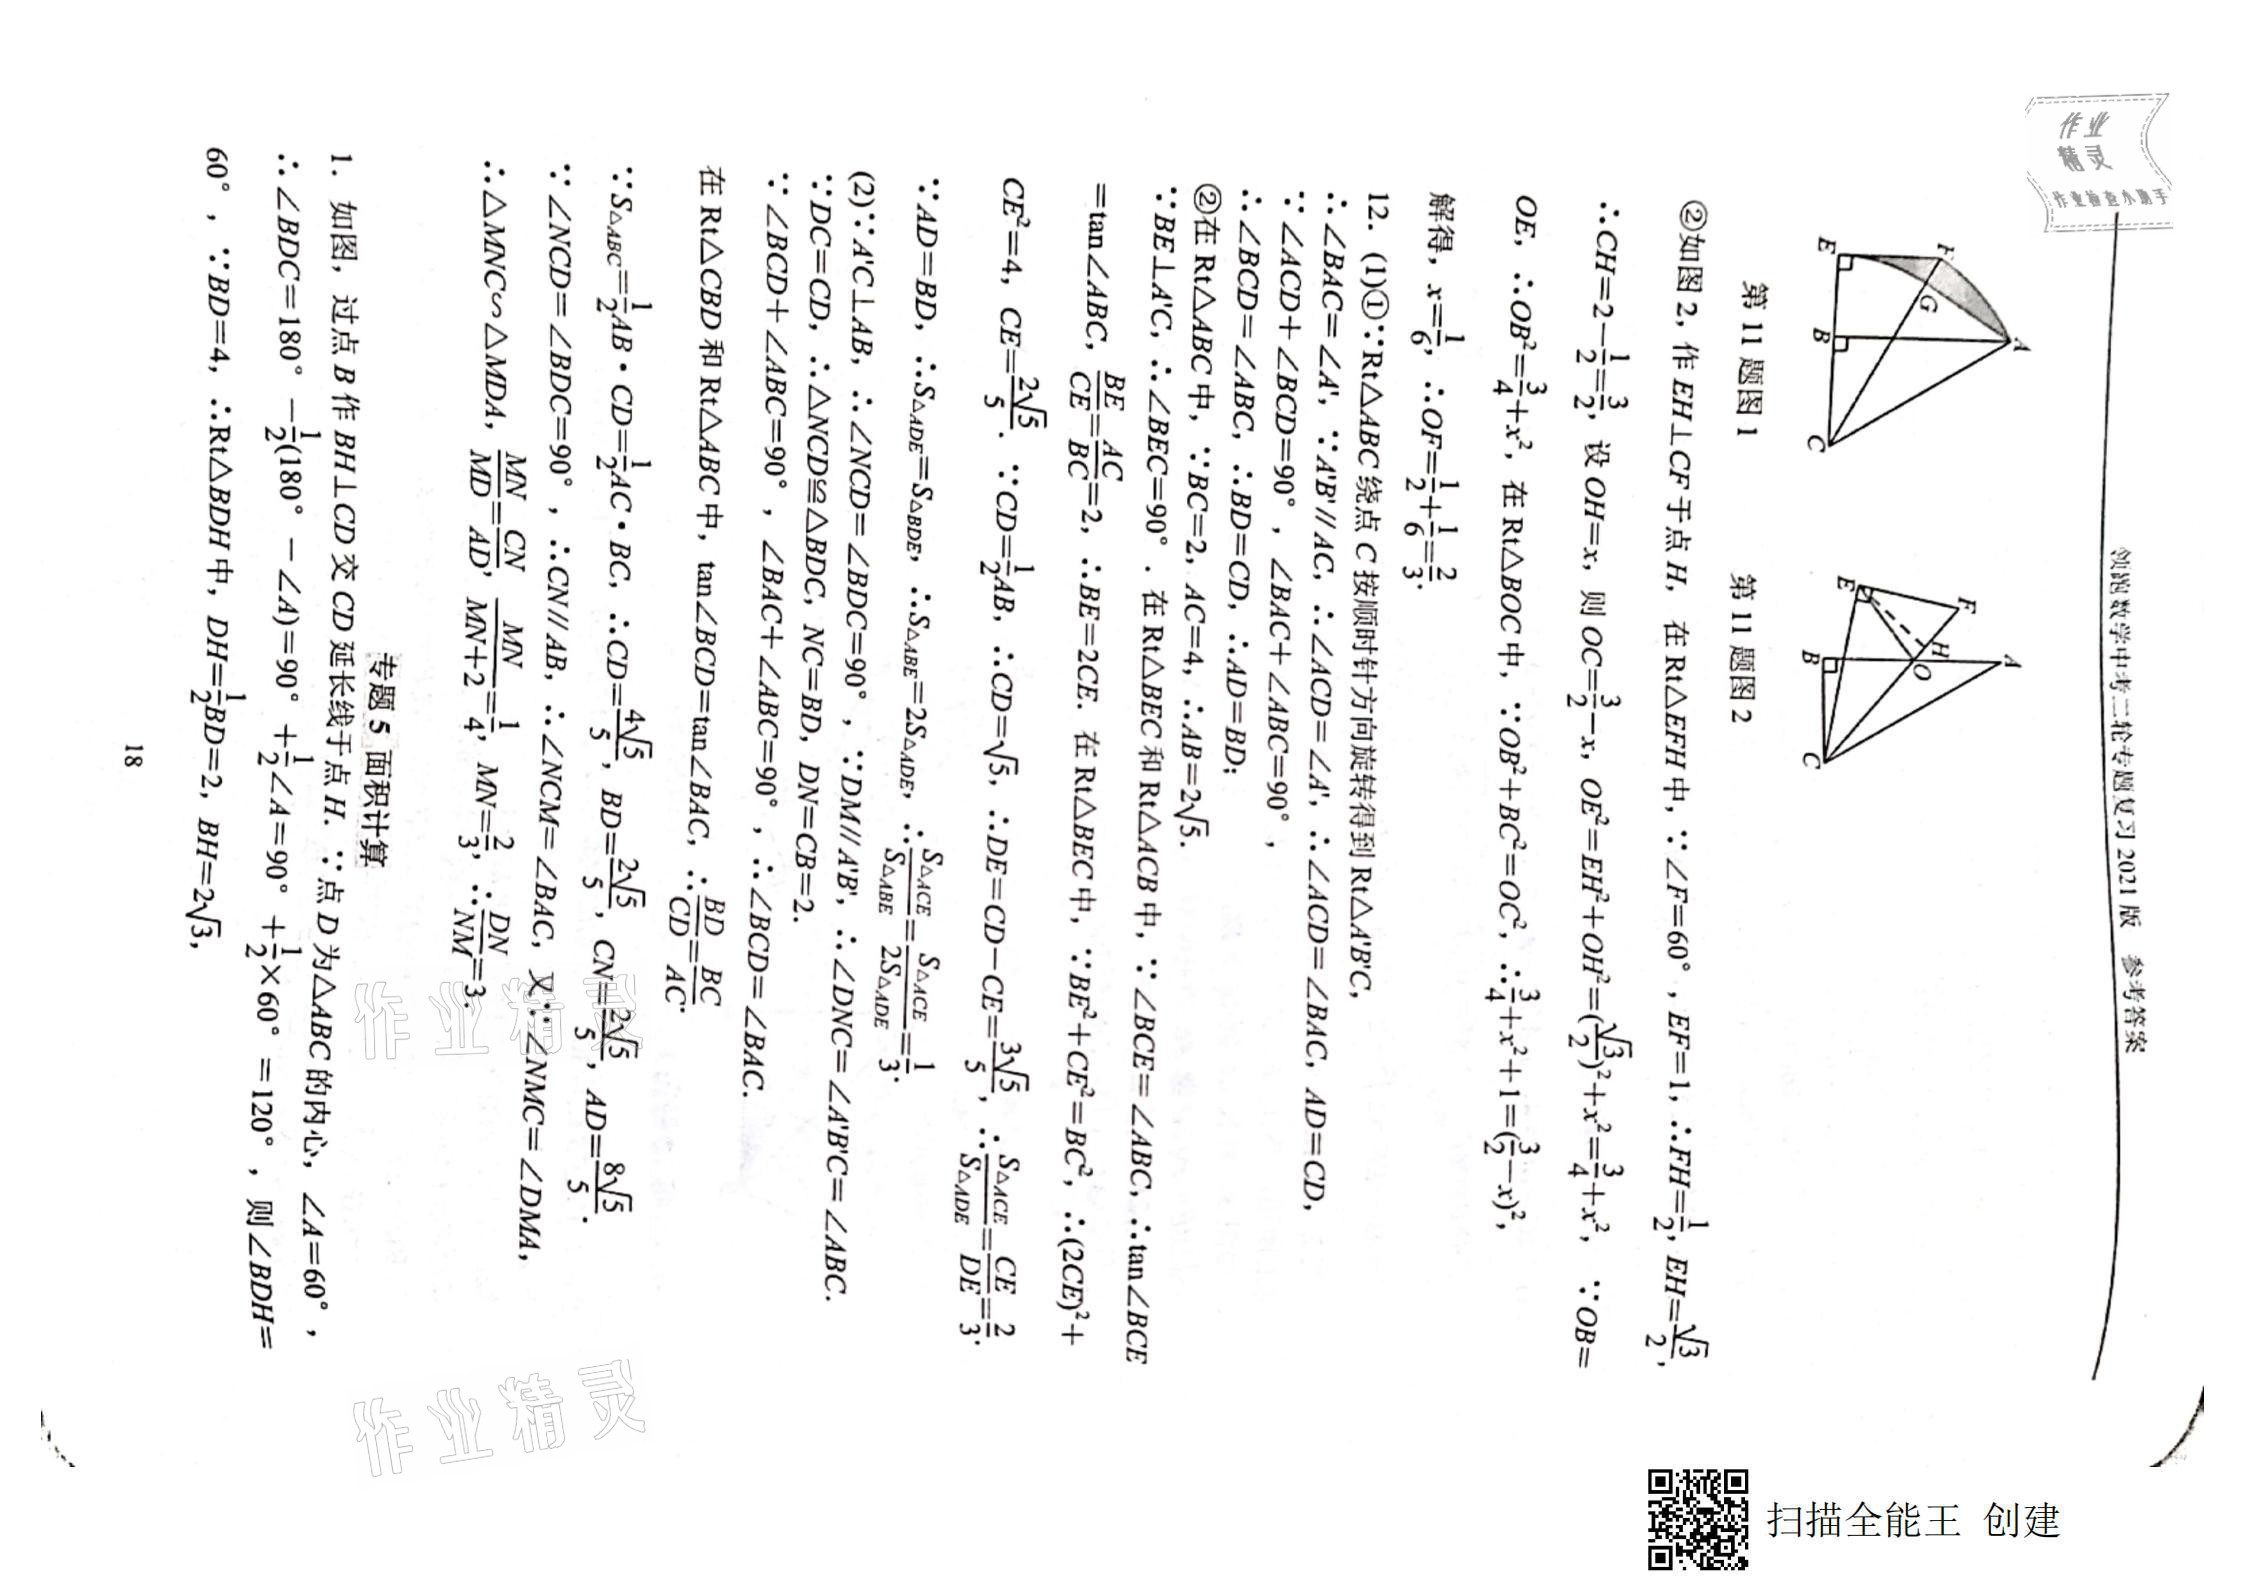 作业
精灵
作业检查小助手
领跑数学中考二轮专题复习 2021 版 参考答案
F A
G
E B C
第 11 题图 1
F A
H
O
E B C
第 11 题图 2
②如图 2，作 EH⊥CF 于点 H，在 Rt△EFH 中，∵∠F=60°，EF=1，∴FH=1/2，EH=√3/2，
∴CH=2−1/2=3/2，设 OH=x，则 OC=3/2−x，OE²=EH²+OH²=(√3/2)²+x²=3/4+x²，∵OB=
OE，∴OB²=3/4+x²，在 Rt△BOC 中，∵OB²+BC²=OC²，∴3/4+x²+1=(3/2−x)²，
解得，x=1/6，∴OF=1/2+1/6=2/3.
12. (1)①∵Rt△ABC 绕点 C 按顺时针方向旋转得到 Rt△A'B'C，
∴∠BAC=∠A'，∵A'B'//AC，∴∠ACD=∠A'，∴∠ACD=∠BAC，AD=CD，
∵∠ACD+∠BCD=90°，∠BAC+∠ABC=90°，
∴∠BCD=∠ABC，∴BD=CD，∴AD=BD；
②在 Rt△ABC 中，∵BC=2，AC=4，∴AB=2√5.
∵BE⊥A'C，∴∠BEC=90°. 在 Rt△BEC 和 Rt△ACB 中，∵∠BCE=∠ABC，∴tan∠BCE
=tan∠ABC，BE/CE=AC/BC=2，∴BE=2CE. 在 Rt△BEC 中，∵BE²+CE²=BC²，∴(2CE)²+
CE²=4，CE=2√5/5. ∵CD=1/2AB，∴CD=√5，∴DE=CD−CE=3√5/5，∴S△ACE/S△ADE=CE/DE=2/3.
∵AD=BD，∴S△ADE=S△BDE，∴S△ABE=2S△ADE，∴S△ACE/S△ABE=S△ACE/2S△ADE=1/3.
(2)∵A'C⊥AB，∴∠NCD=∠BDC=90°，∵DM//A'B'，∴∠DNC=∠A'B'C=∠ABC.
∵DC=CD，∴△NCD≌△BDC，NC=BD，DN=CB=2.
∵∠BCD+∠ABC=90°，∠BAC+∠ABC=90°，∴∠BCD=∠BAC.
在 Rt△CBD 和 Rt△ABC 中，tan∠BCD=tan∠BAC，∴BD/CD=BC/AC.
∵S△ABC=1/2AB·CD=1/2AC·BC，∴CD=4√5/5，BD=2√5/5，CN=2√5/5，AD=8√5/5.
∵∠NCD=∠BDC=90°，∴CN//AB，∴∠NCM=∠BAC，又∵∠NMC=∠DMA，
∴△MNC∽△MDA，MN/MD=CN/AD，MN/MN+2=1/4，MN=2/3，∴DN/NM=3.
专题 5 面积计算
1. 如图，过点 B 作 BH⊥CD 交 CD 延长线于点 H. ∵点 D 为△ABC 的内心，∠A=60°，
∴∠BDC=180°−1/2(180°−∠A)=90°+1/2∠A=90°+1/2×60°=120°，则∠BDH=
60°，∵BD=4，∴Rt△BDH 中，DH=1/2BD=2，BH=2√3，
18
作业精灵
作业精灵
扫描全能王 创建